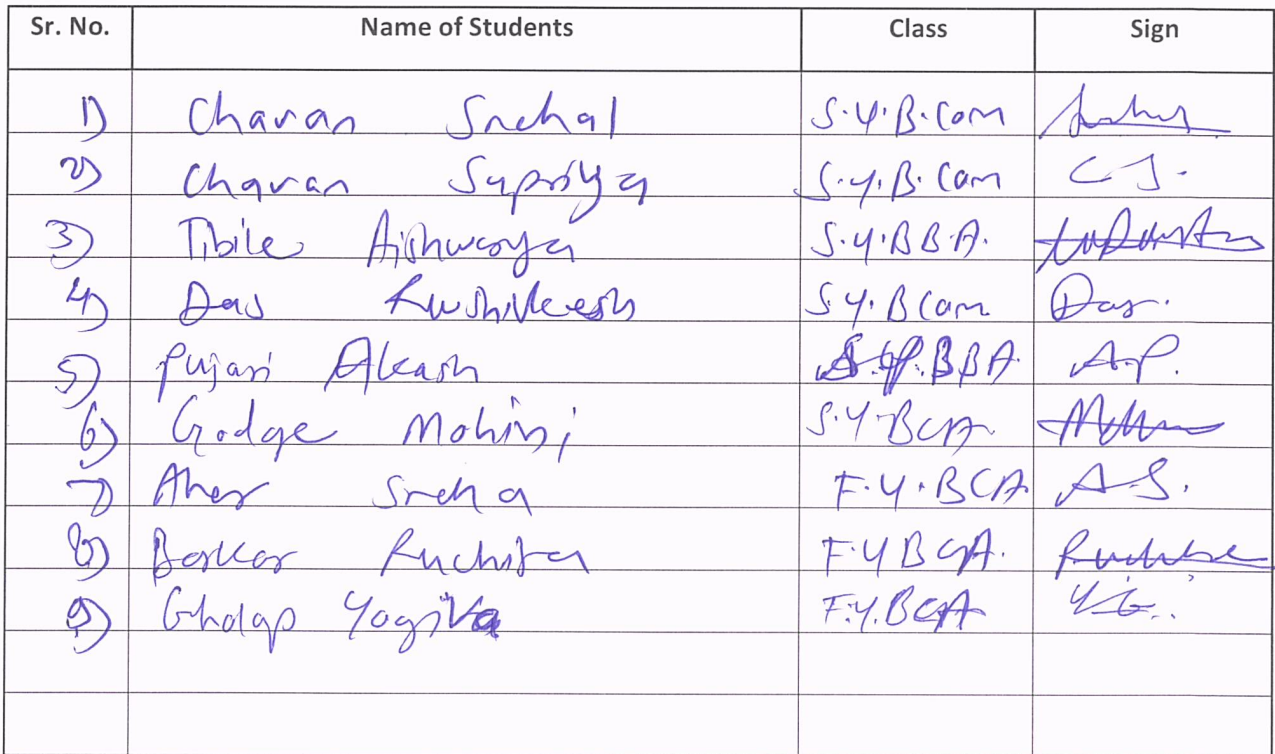 Sr. No. Name of Students Class Sign
1) Chavan Snehal S.Y.B.Com
2) Chavan Supriya S.Y.B.Com C S.
3) Tibile Aishwarya S.Y.BBA.
4) Das Rushikesh S.Y.BCom Das.
5) Pujari Akash S.Y.BBA. A.P.
6) Godge Mohini S.Y.BCA
7) Aher Sneha F.Y.BCA A.S.
8) Borkar Ruchita F.Y BCA. Ruchita
9) Gholap Yogita F.Y.BCA Y.G.